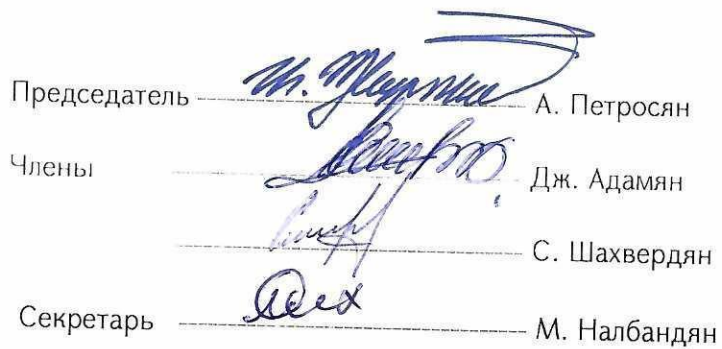 Председатель А. Петросян
Члены Дж. Адамян
С. Шахвердян
Секретарь М. Налбандян